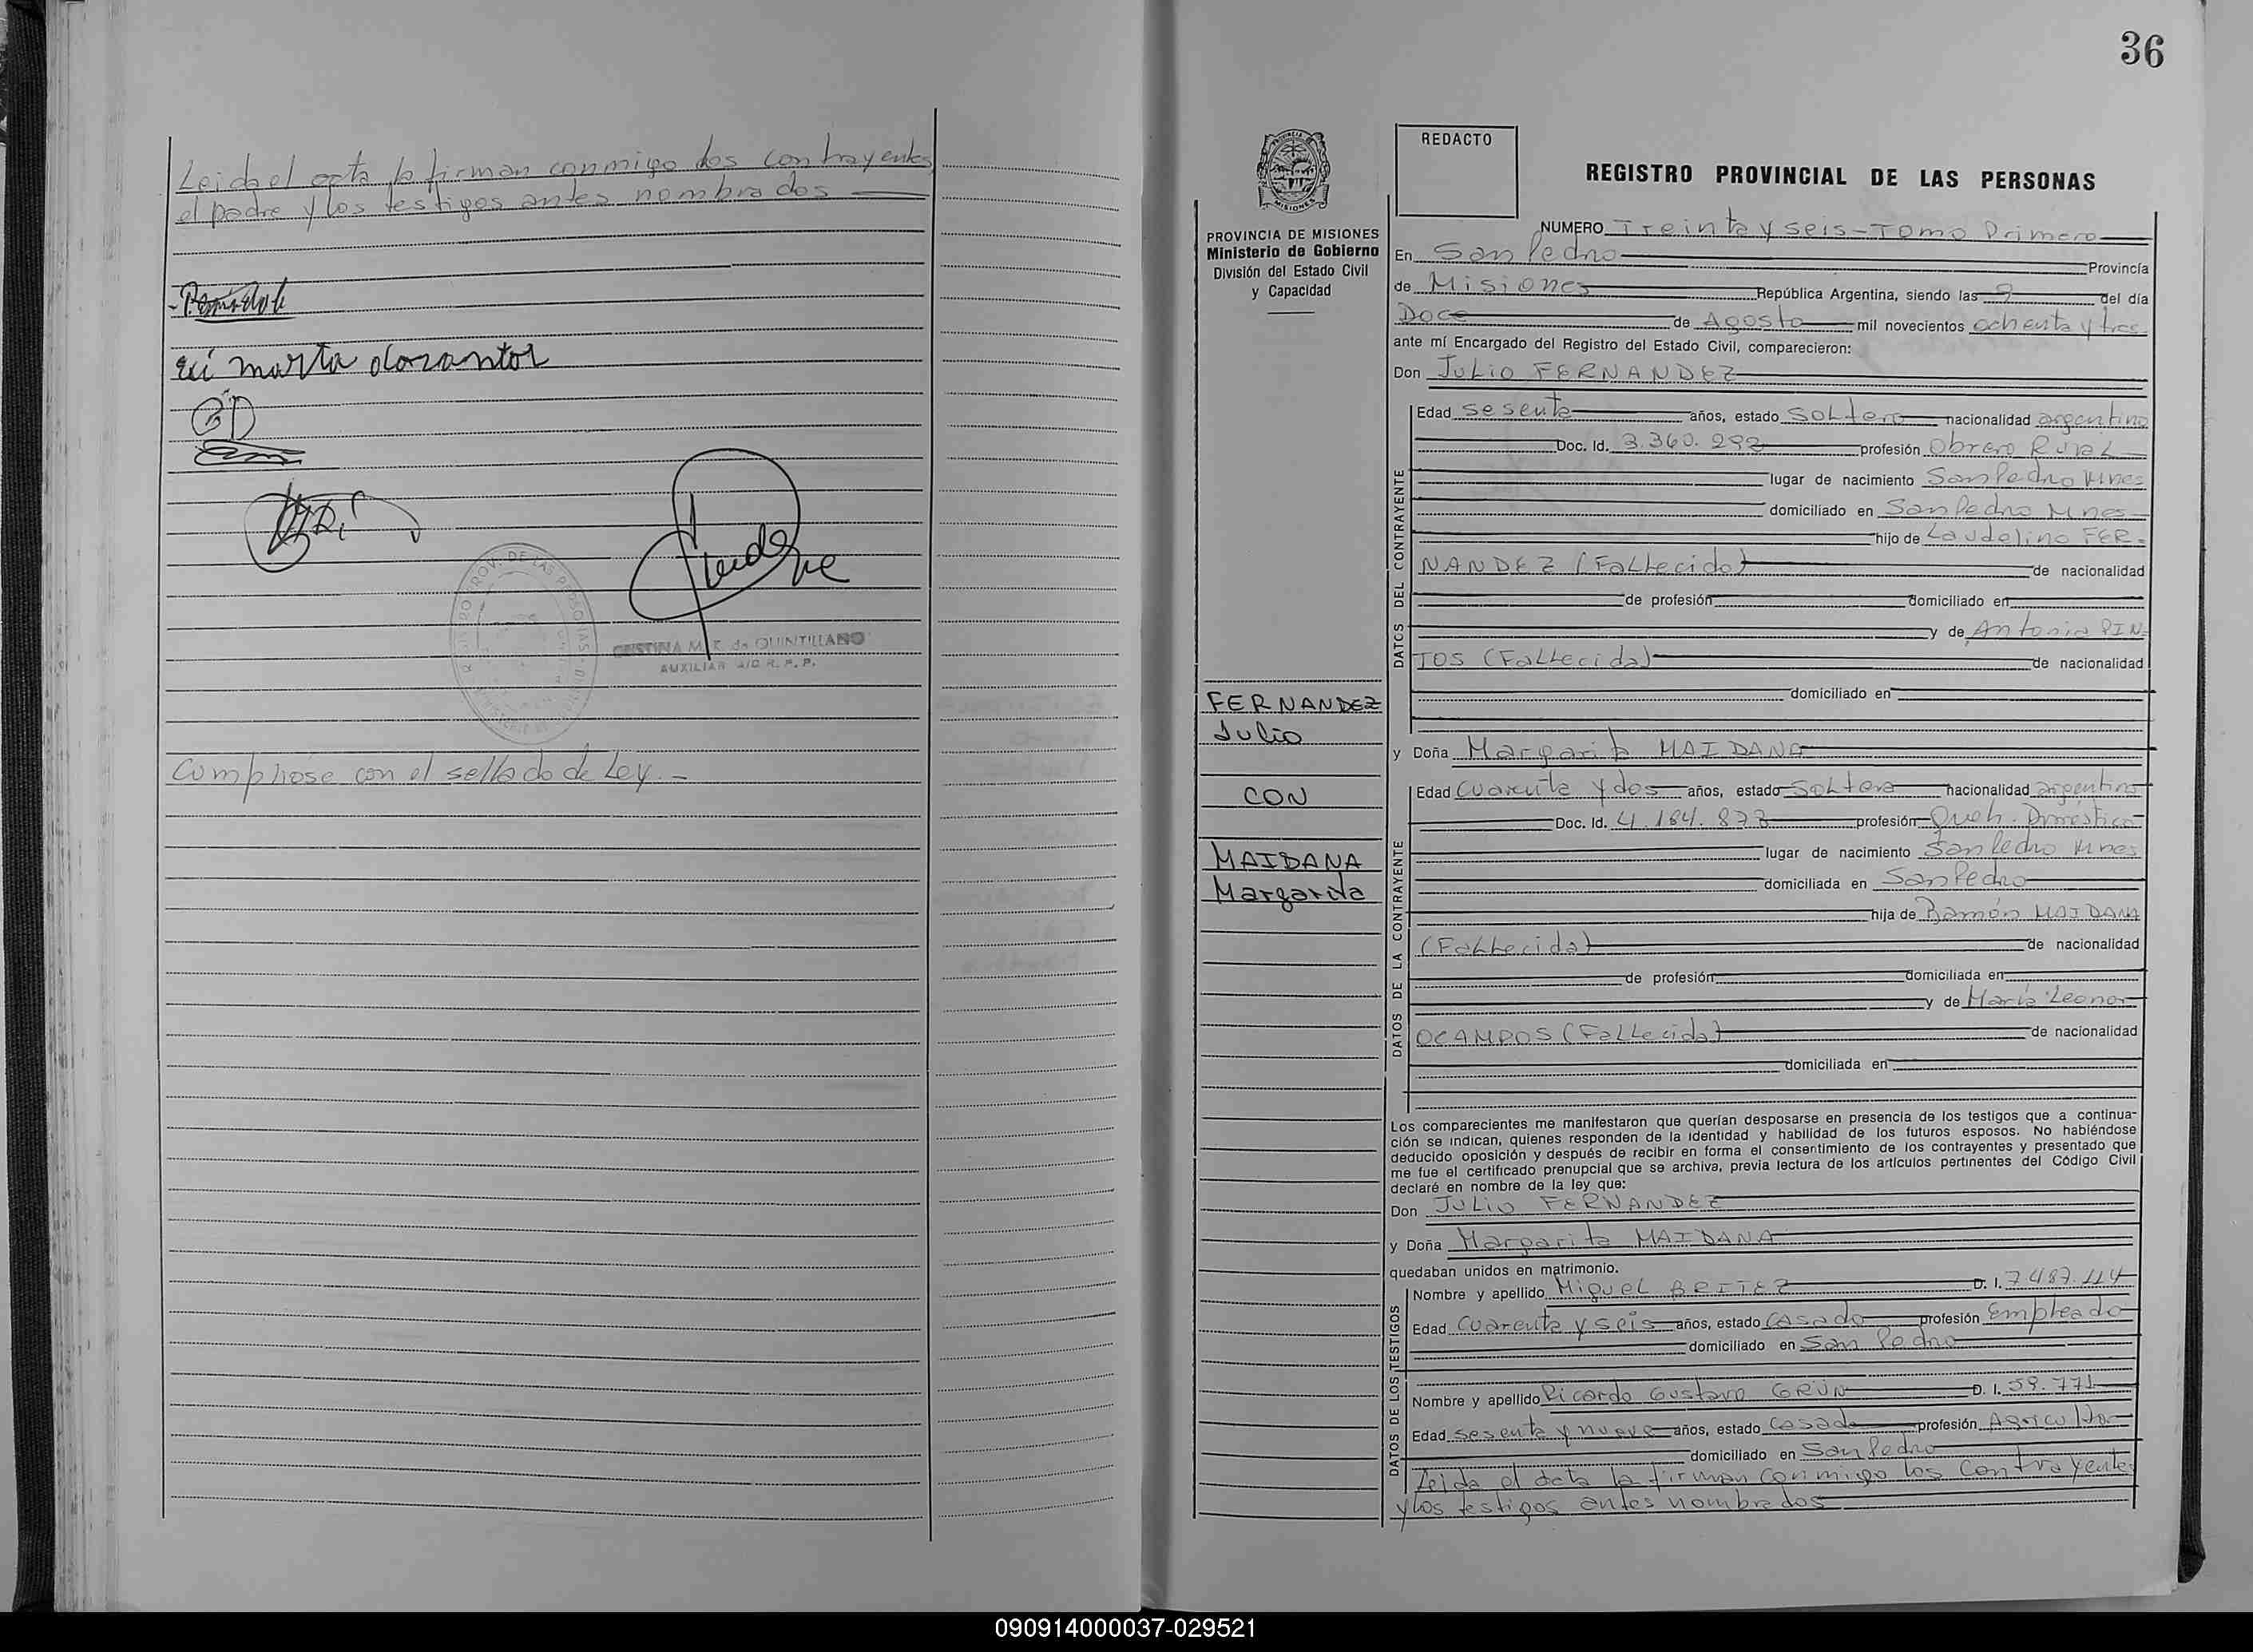 Leida el acta la firman conmigo los contrayentes
el padre y los testigos antes nombrados
marta
CRISTINA M. K. de QUINTILLANO
AUXILIAR A/C R. P. P.
Cumpliose con el sellado de Ley.-
36
REDACTO
REGISTRO PROVINCIAL DE LAS PERSONAS
PROVINCIA DE MISIONES
Ministerio de Gobierno
División del Estado Civil
y Capacidad
FERNANDEZ
Julio
CON
MAIDANA
Margarita
NUMERO Treinta y seis-Tomo Primero
En San Pedro Provincia
de Misiones República Argentina, siendo las 9 del día
Doce de Agosto mil novecientos ochenta y tres
ante mí Encargado del Registro del Estado Civil, comparecieron:
Don Julio FERNANDEZ
DATOS DEL CONTRAYENTE
Edad sesenta años, estado soltero nacionalidad argentino
Doc. Id. 3.360.292 profesión Obrero Rural
lugar de nacimiento San Pedro Mnes
domiciliado en San Pedro Mnes
hijo de Laudelino FER-
NANDEZ (Fallecido) de nacionalidad
de profesión domiciliado en
y de Antonia PIN-
TOS (Fallecida) de nacionalidad
domiciliado en
y Doña Margarita MAIDANA
DATOS DE LA CONTRAYENTE
Edad cuarenta y dos años, estado soltera nacionalidad argentina
Doc. Id. 4.184.873 profesión Queh. Domestica
lugar de nacimiento San Pedro Mnes
domiciliada en San Pedro
hija de Ramón MAIDANA
(Fallecido) de nacionalidad
de profesión domiciliada en
y de María Leonor
OCAMPOS (Fallecida) de nacionalidad
domiciliada en
Los comparecientes me manifestaron que querían desposarse en presencia de los testigos que a continua-
ción se indican, quienes responden de la identidad y habilidad de los futuros esposos. No habiéndose
deducido oposición y después de recibir en forma el consentimiento de los contrayentes y presentado que
me fue el certificado prenupcial que se archiva, previa lectura de los artículos pertinentes del Código Civil
declaré en nombre de la ley que:
Don Julio FERNANDEZ
y Doña Margarita MAIDANA
quedaban unidos en matrimonio.
DATOS DE LOS TESTIGOS
Nombre y apellido Miguel BRITEZ D. I. 7.487.114
Edad cuarenta y seis años, estado casado profesión Empleado
domiciliado en San Pedro
Nombre y apellido Ricardo Gustavo GRÜN D. I. 59.771
Edad sesenta y nueve años, estado casado profesión Agricultor
domiciliado en San Pedro
Leida el acta la firman conmigo los contrayentes
y los testigos antes nombrados
090914000037-029521